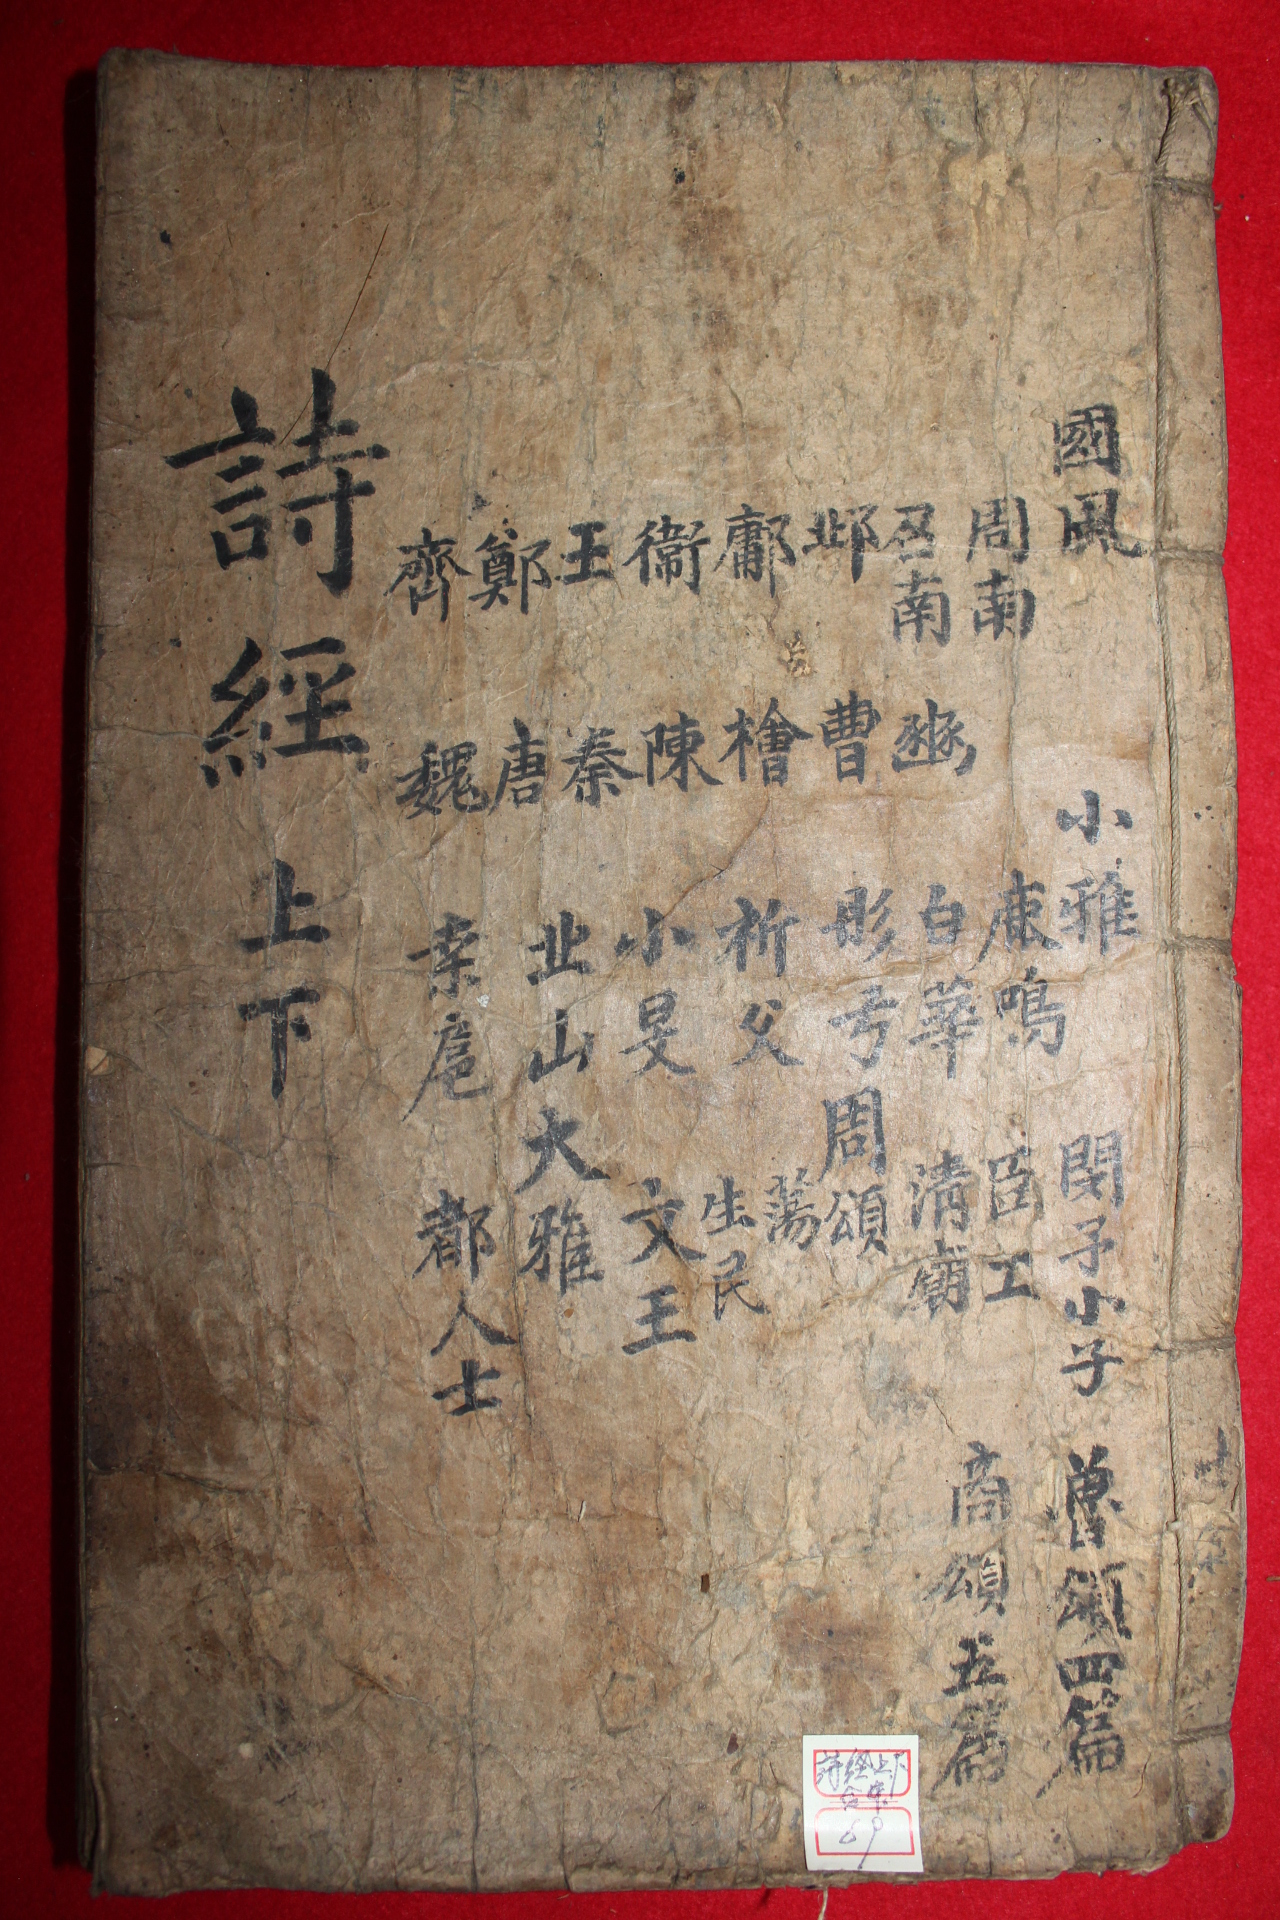 國風
周南
召南
邶
鄘
衛
王
鄭
齊
魏
唐
秦
陳
檜
曹
豳
小雅
鹿鳴
白華
彤弓
祈父
小旻
北山
桑扈
都人士
大雅
文王
生民
蕩
周頌
清廟
臣工
閔予小子
魯頌四篇
商頌五篇
詩經 上下
詩經上下
合本
69